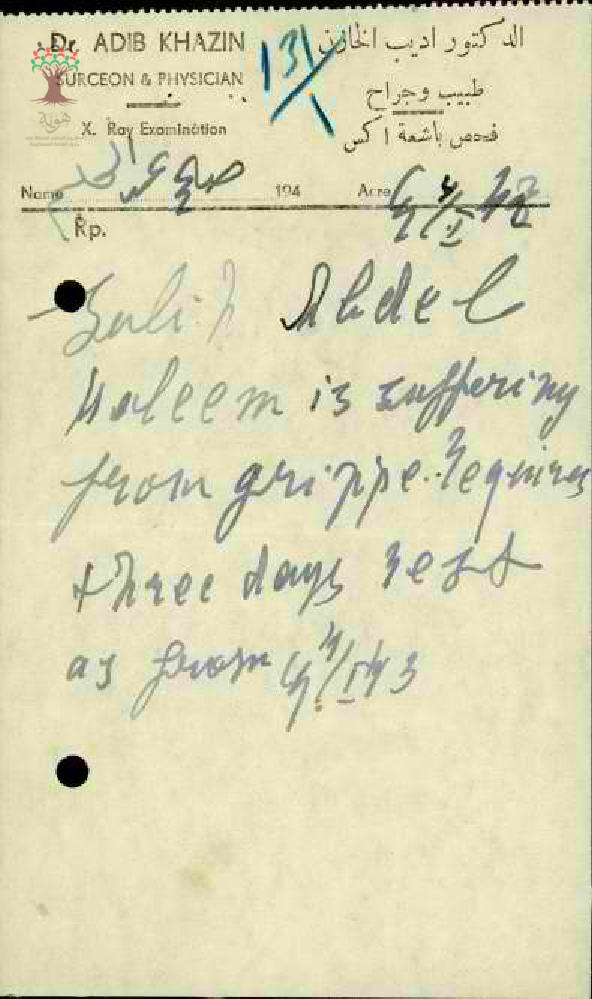 Dr. ADIB KHAZIN
SURGEON & PHYSICIAN
X. Ray Examination
الدكتور اديب الخازن
طبيب وجراح
فحص باشعة اكس
131/1
هوية
Name صالح عبد الحليم 194 Acre
Rp.
Salih Abdel
Haleem is suffering
from grippe. Requires
three days rest
as from 4/I 43